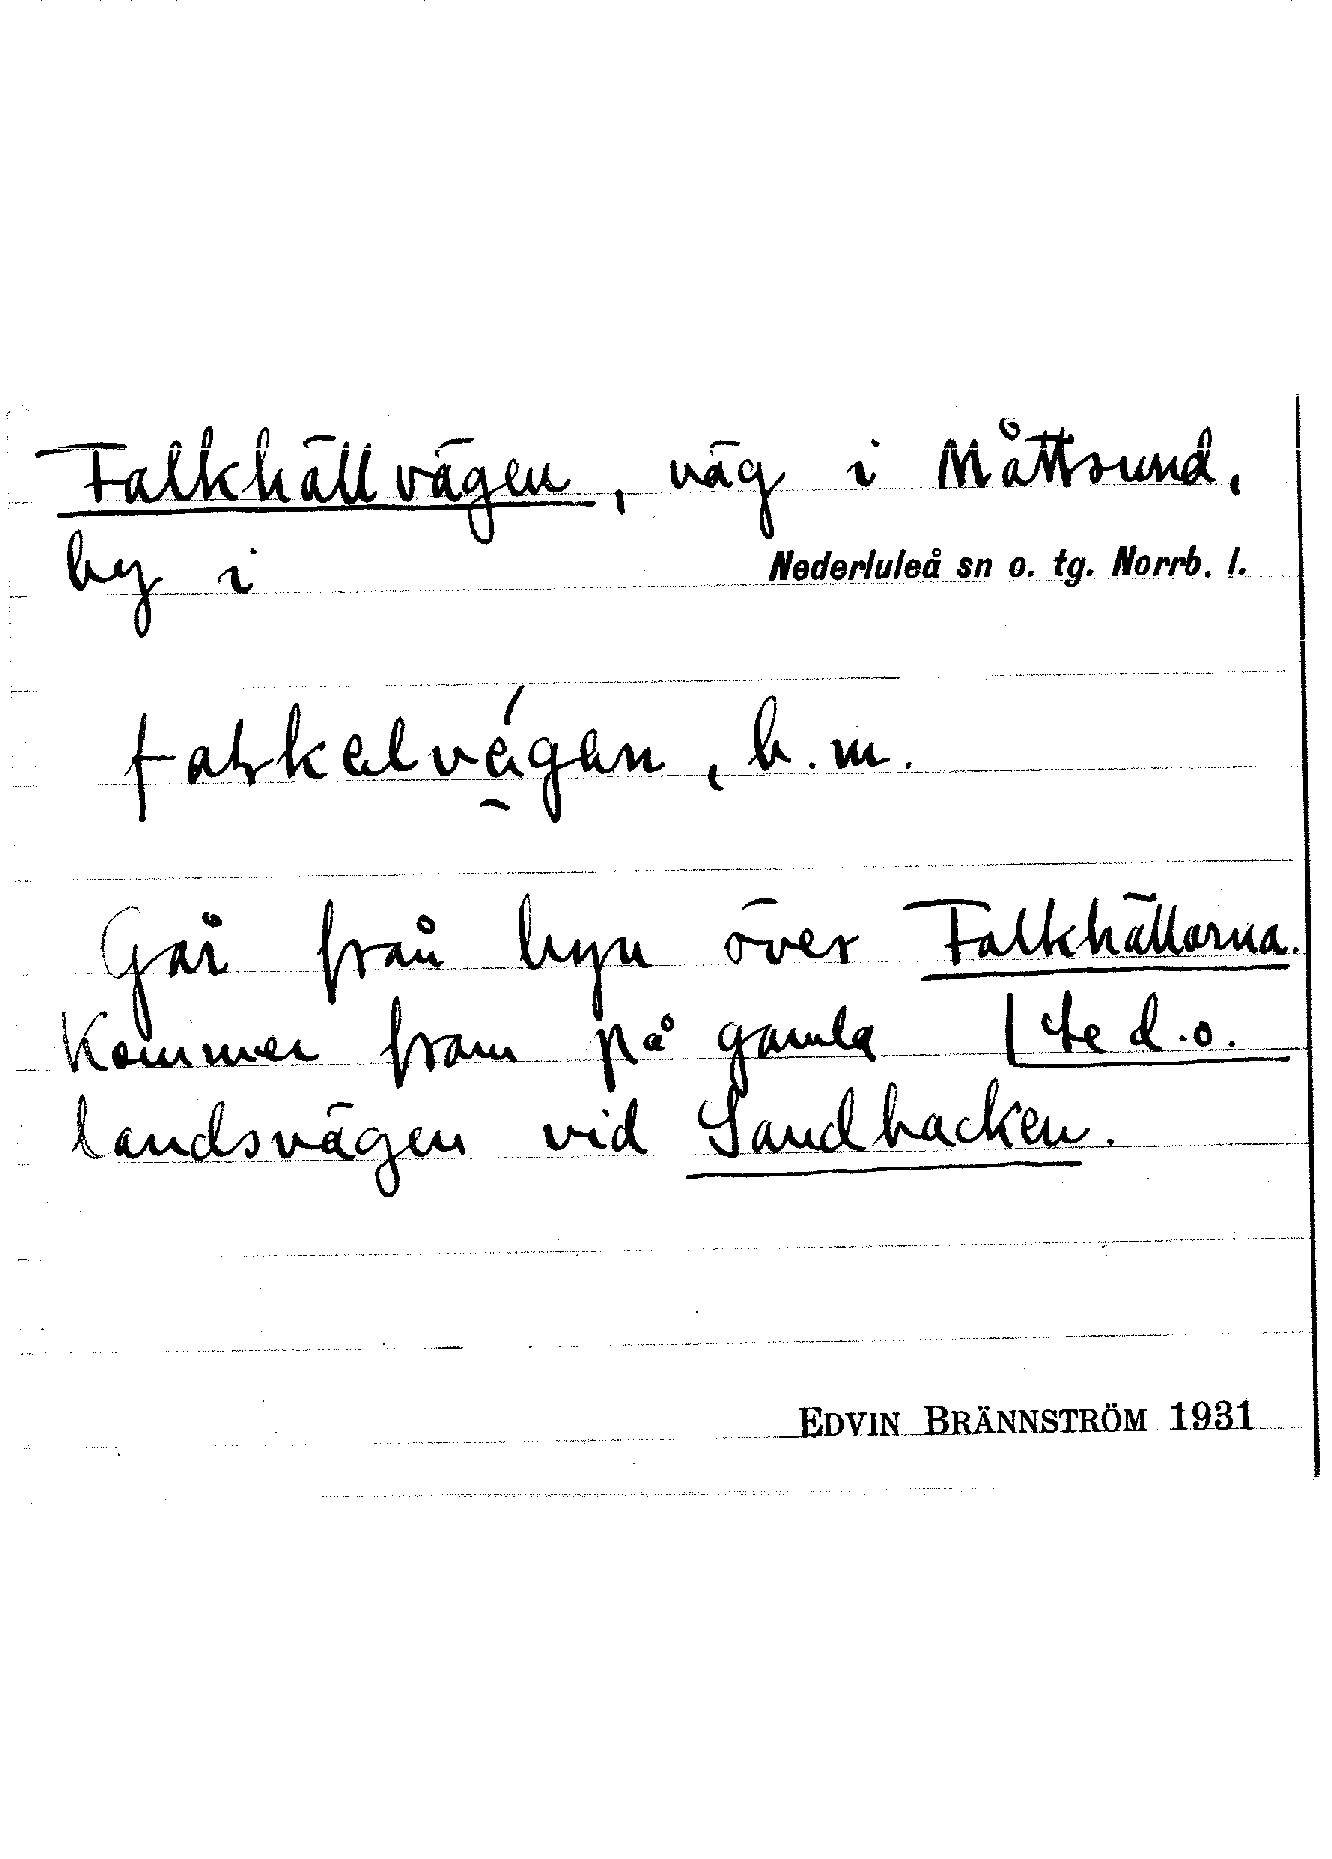 Falkhällvägen, väg i Måttsund,
by i Nederluleå sn o. tg. Norrb. l.
b.m.
Går från byn över Falkhällarna.
Kommer fram på gamla se d.o.
landsvägen vid Sandbacken.
EDVIN BRÄNNSTRÖM 1931